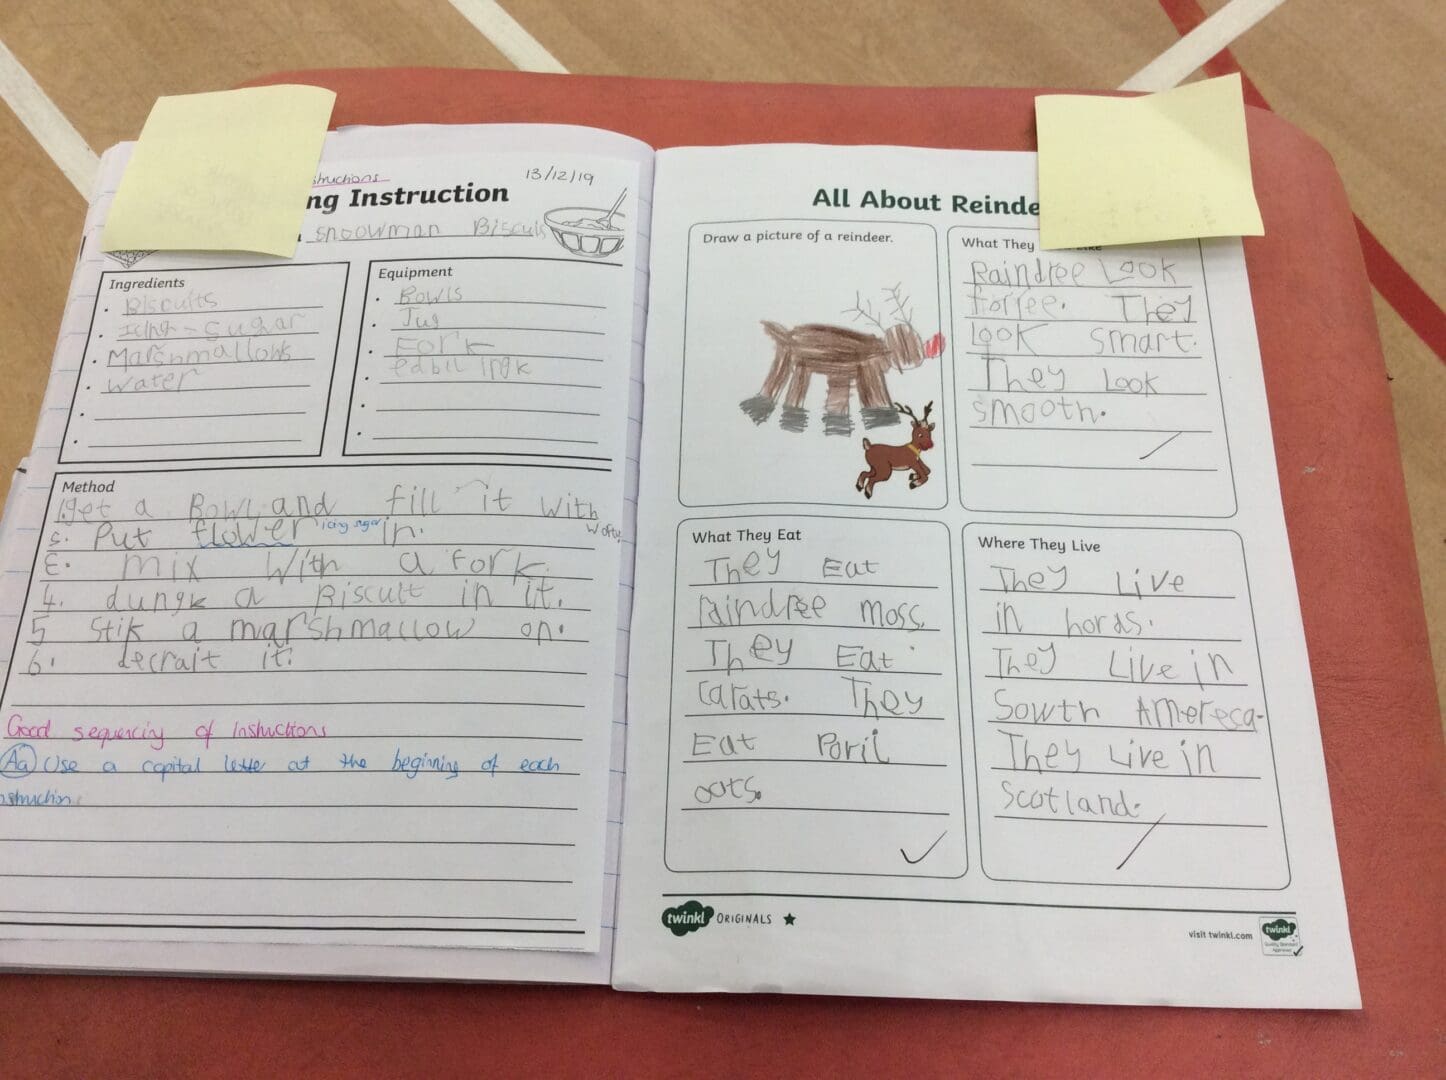 structions
13/12/19
ng Instruction
snoowman Biscuis
Ingredients
Biscuits
Icing-sugar
Marshmallows
water
Equipment
Bowls
Jug
Fork
edbil ingk
Method
1.get a Bowl and fill it with
water
2. Put flower icing sugar in.
3. mix with a fork.
4. dungk a Biscuit in it.
5 Stik a marshmallow on.
6. decrait it.
Good sequencing of Instructions
Aa Use a capital letter at the beginning of each
nstruction
All About Reinde
Draw a picture of a reindeer.
What They
Raindree Look
forree. They
Look smart.
They Look
smooth.
What They Eat
They Eat
raindree moss.
They Eat
carats. They
Eat Poril
oats.
Where They Live
They Live
in hords.
They Live in
Sowth Amereca.
They Live in
Scotland.
twinkl ORIGINALS
visit twinkl.com
twinkl
Quality Standard
Approved